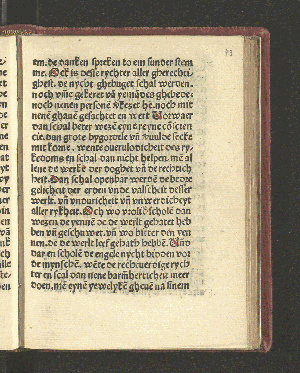 em. de danken spreken to em sunder stem
me. Ock is desse rychter aller gherechti
gheit. de nycht ghebuget schal werden.
noch vmme gekeret vā yemādes ghebede.
noch nenen personē vkeset he. noch mit
nene ghaue gesachtet en wert Vorwaer
dan schal beter wesē eyne reyne cōscien
cie. dan grote bygordele vñ vulde secke
mit
wente ouerulodicheit des ry
kedoms en schal dan nicht helpen. mē al
lene de werke der dogheit vñ de rechtich
beit. Dan schal openbar werdē de brode
gelicheit der erden vnde valscheit desser
werlt. vñ vnduricheit vñ vnwerdicheyt
aller rykheit. Och wo vrolik scholē dan
wezen de yennē de de werlt gehatet heb
ben vñ geschuwet. vñ wo bitter den yen
nen. de de werlt leef gehath hebbē. Vnd
dar en scholē de engele nycht bidden vor
de mynschē. wēte de rechtuerdige rych
ter en schal dan nene barmherticheit meer
doen. mē eynē yewelykē gheuē na sinem